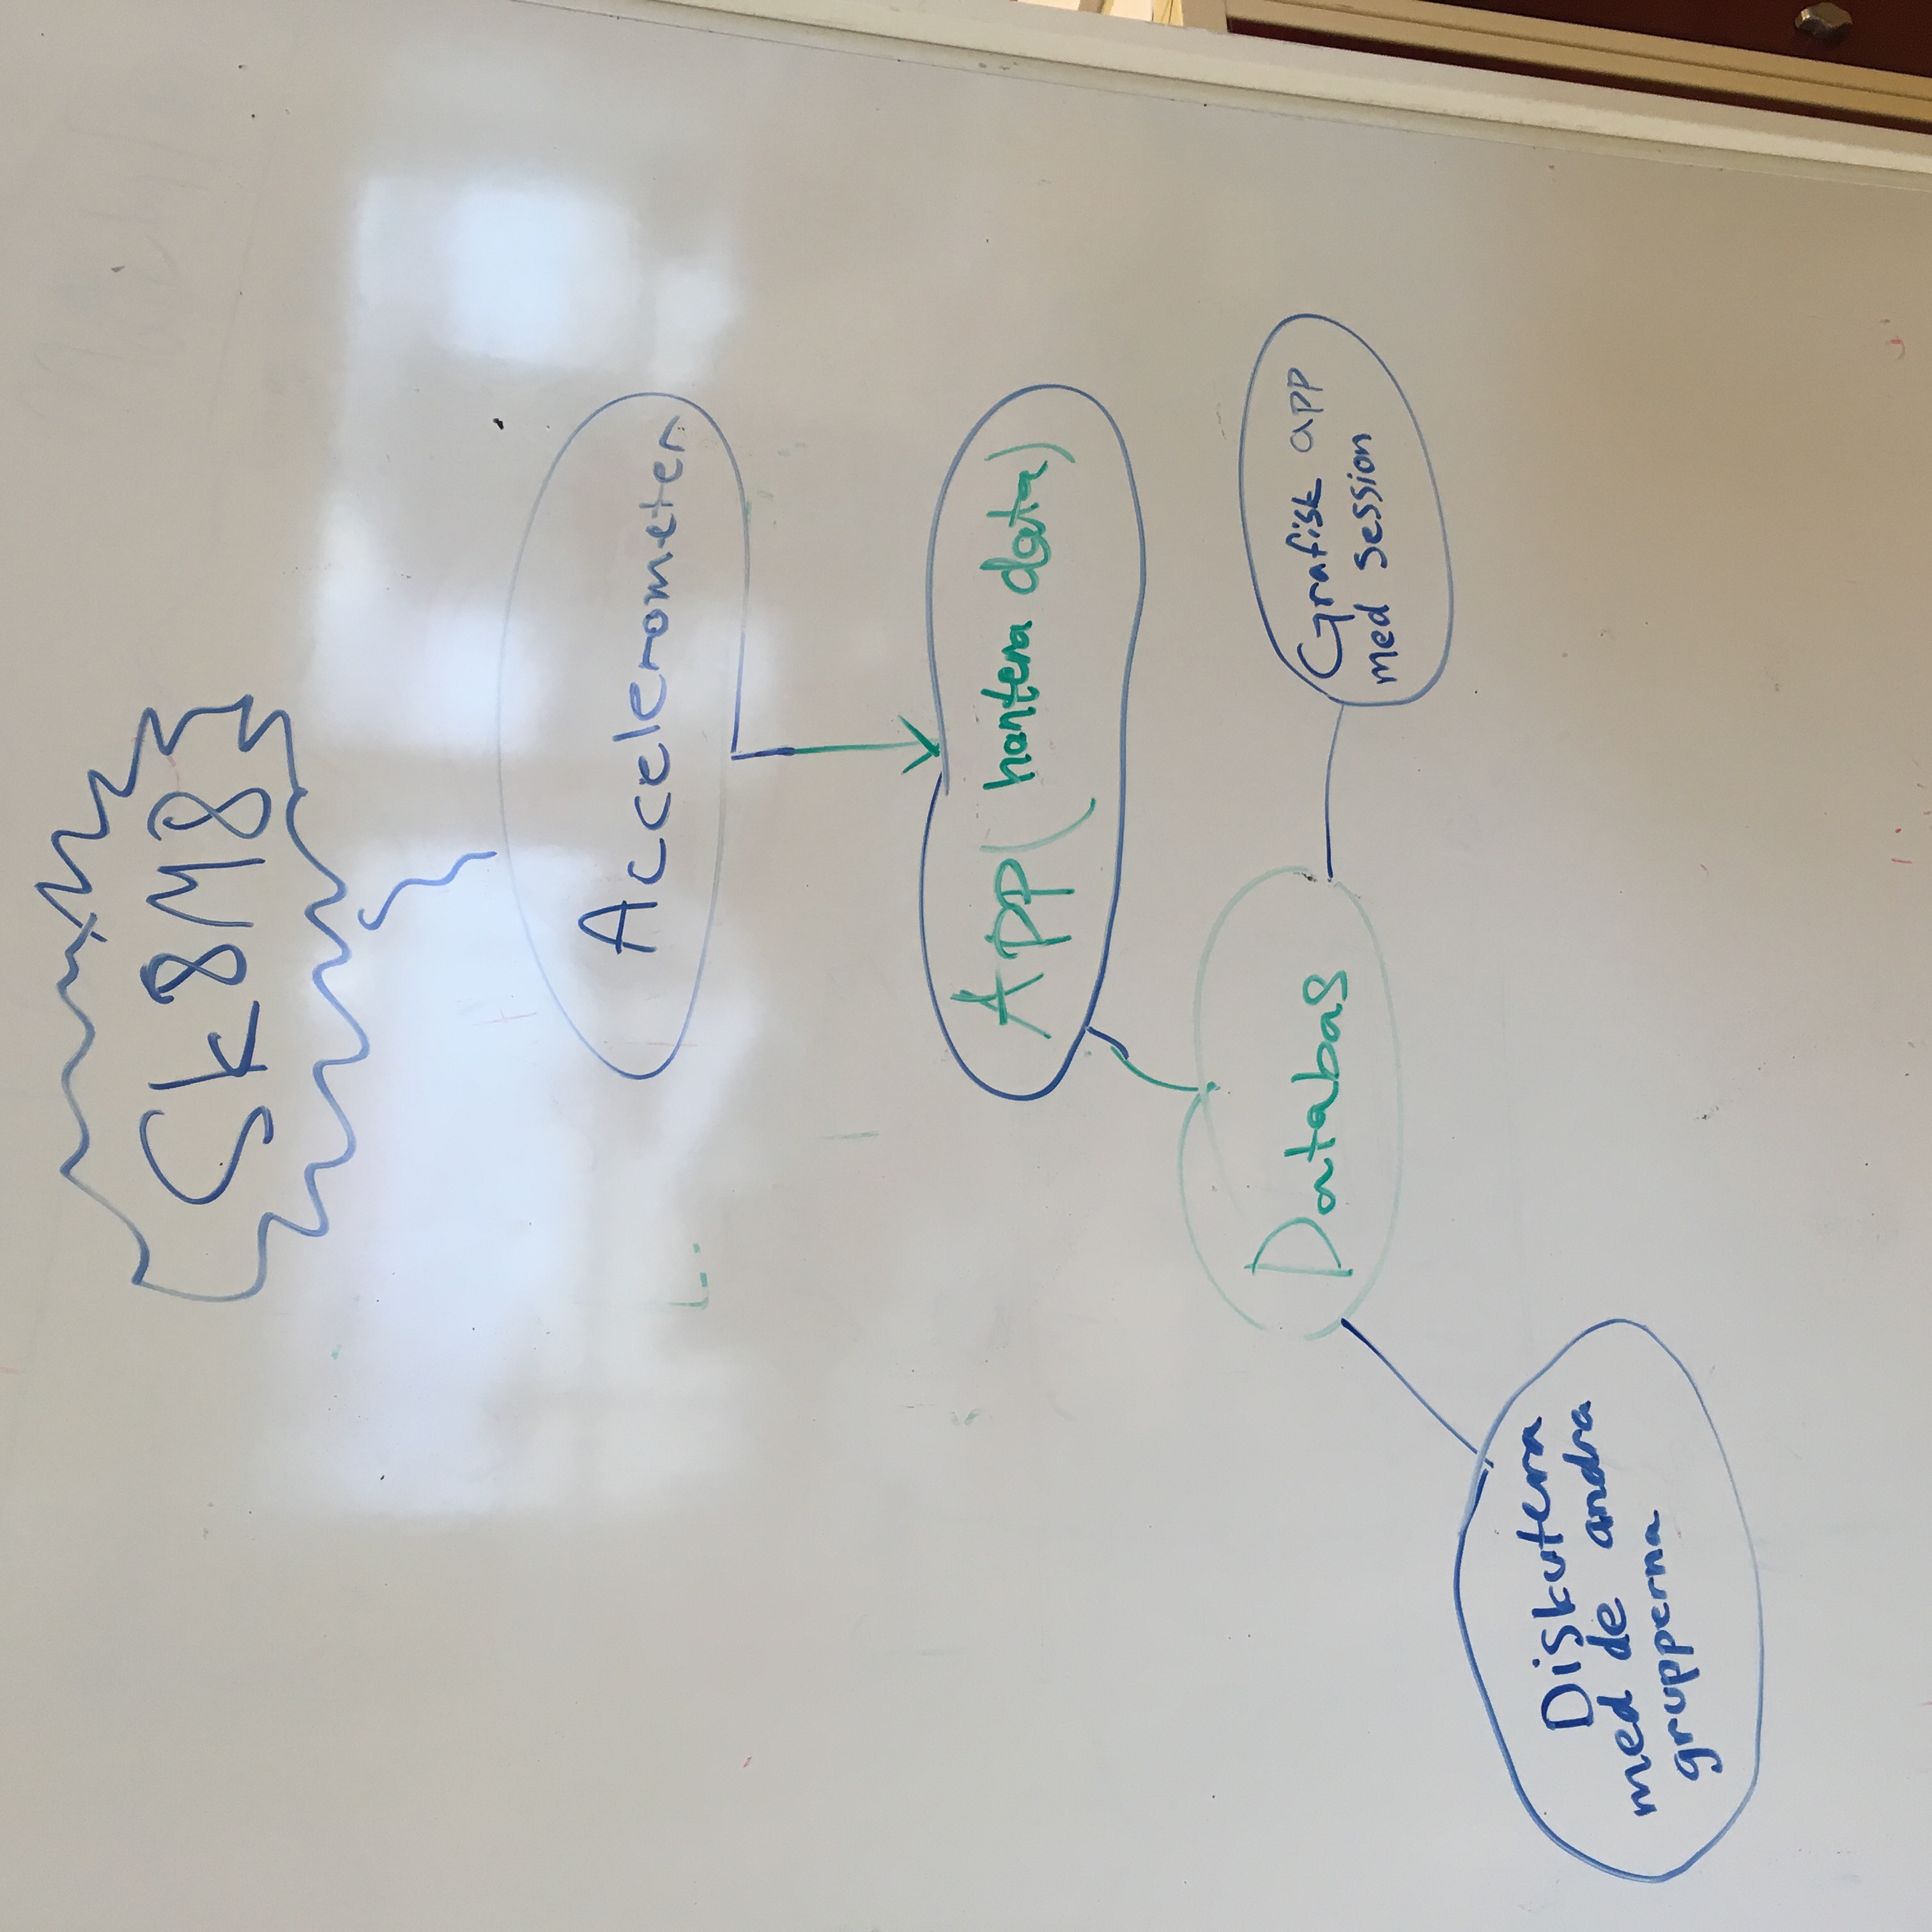 Sk8M8
Accelerometer
App( hantera data)
Databas
Grafisk app
med session
Diskutera
med de andra
grupperna